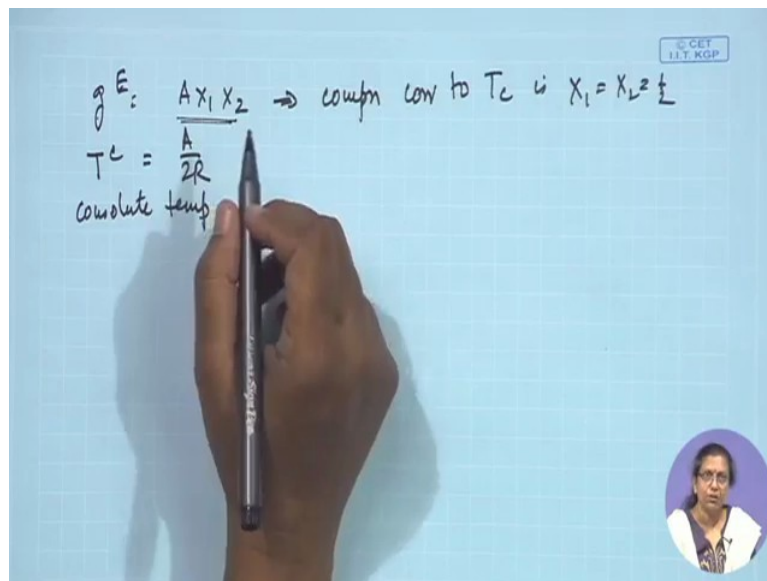 © CET
I.I.T. KGP
g^E: A x₁ x₂ ⇒ compn corr to T_c is x₁ = x₂ = ½
T^c = A/2R
consolute temp